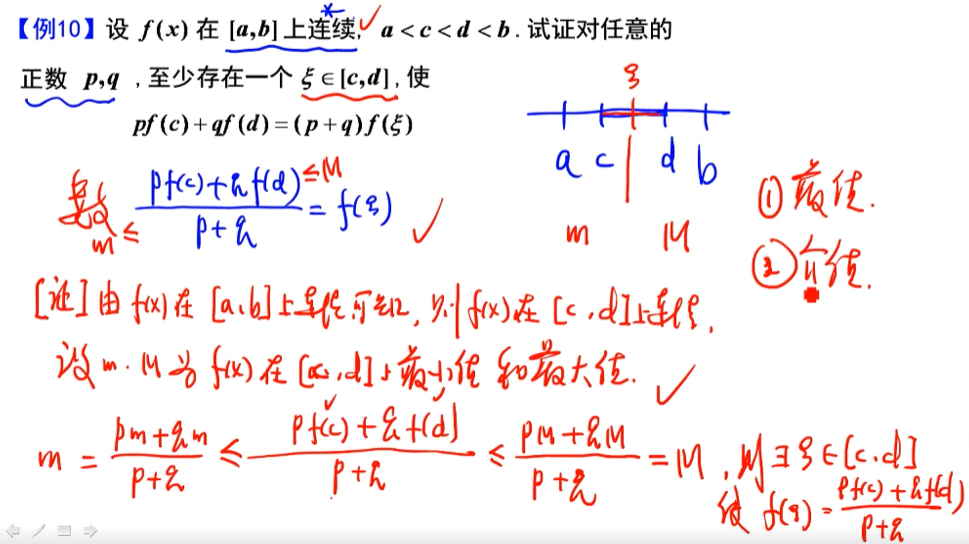 【例10】设 f(x) 在 [a,b] 上连续, a<c<d<b. 试证对任意的
正数 p,q ,至少存在一个 ξ∈[c,d],使
pf(c)+qf(d)=(p+q)f(ξ)
ξ
a c d b
m M
m ≤ (pf(c)+qf(d))/(p+q) ≤M = f(ξ)
①最值.
②介值.
[证] 由 f(x) 在 [a,b] 上连续可知, 则 f(x) 在 [c,d] 上连续,
设 m. M 为 f(x) 在 [c,d] 上最小值和最大值.
m = (pm+qm)/(p+q) ≤ (pf(c)+qf(d))/(p+q) ≤ (pM+qM)/(p+q) = M, 则 ∃ξ∈[c,d]
使 f(ξ) = (pf(c)+qf(d))/(p+q)